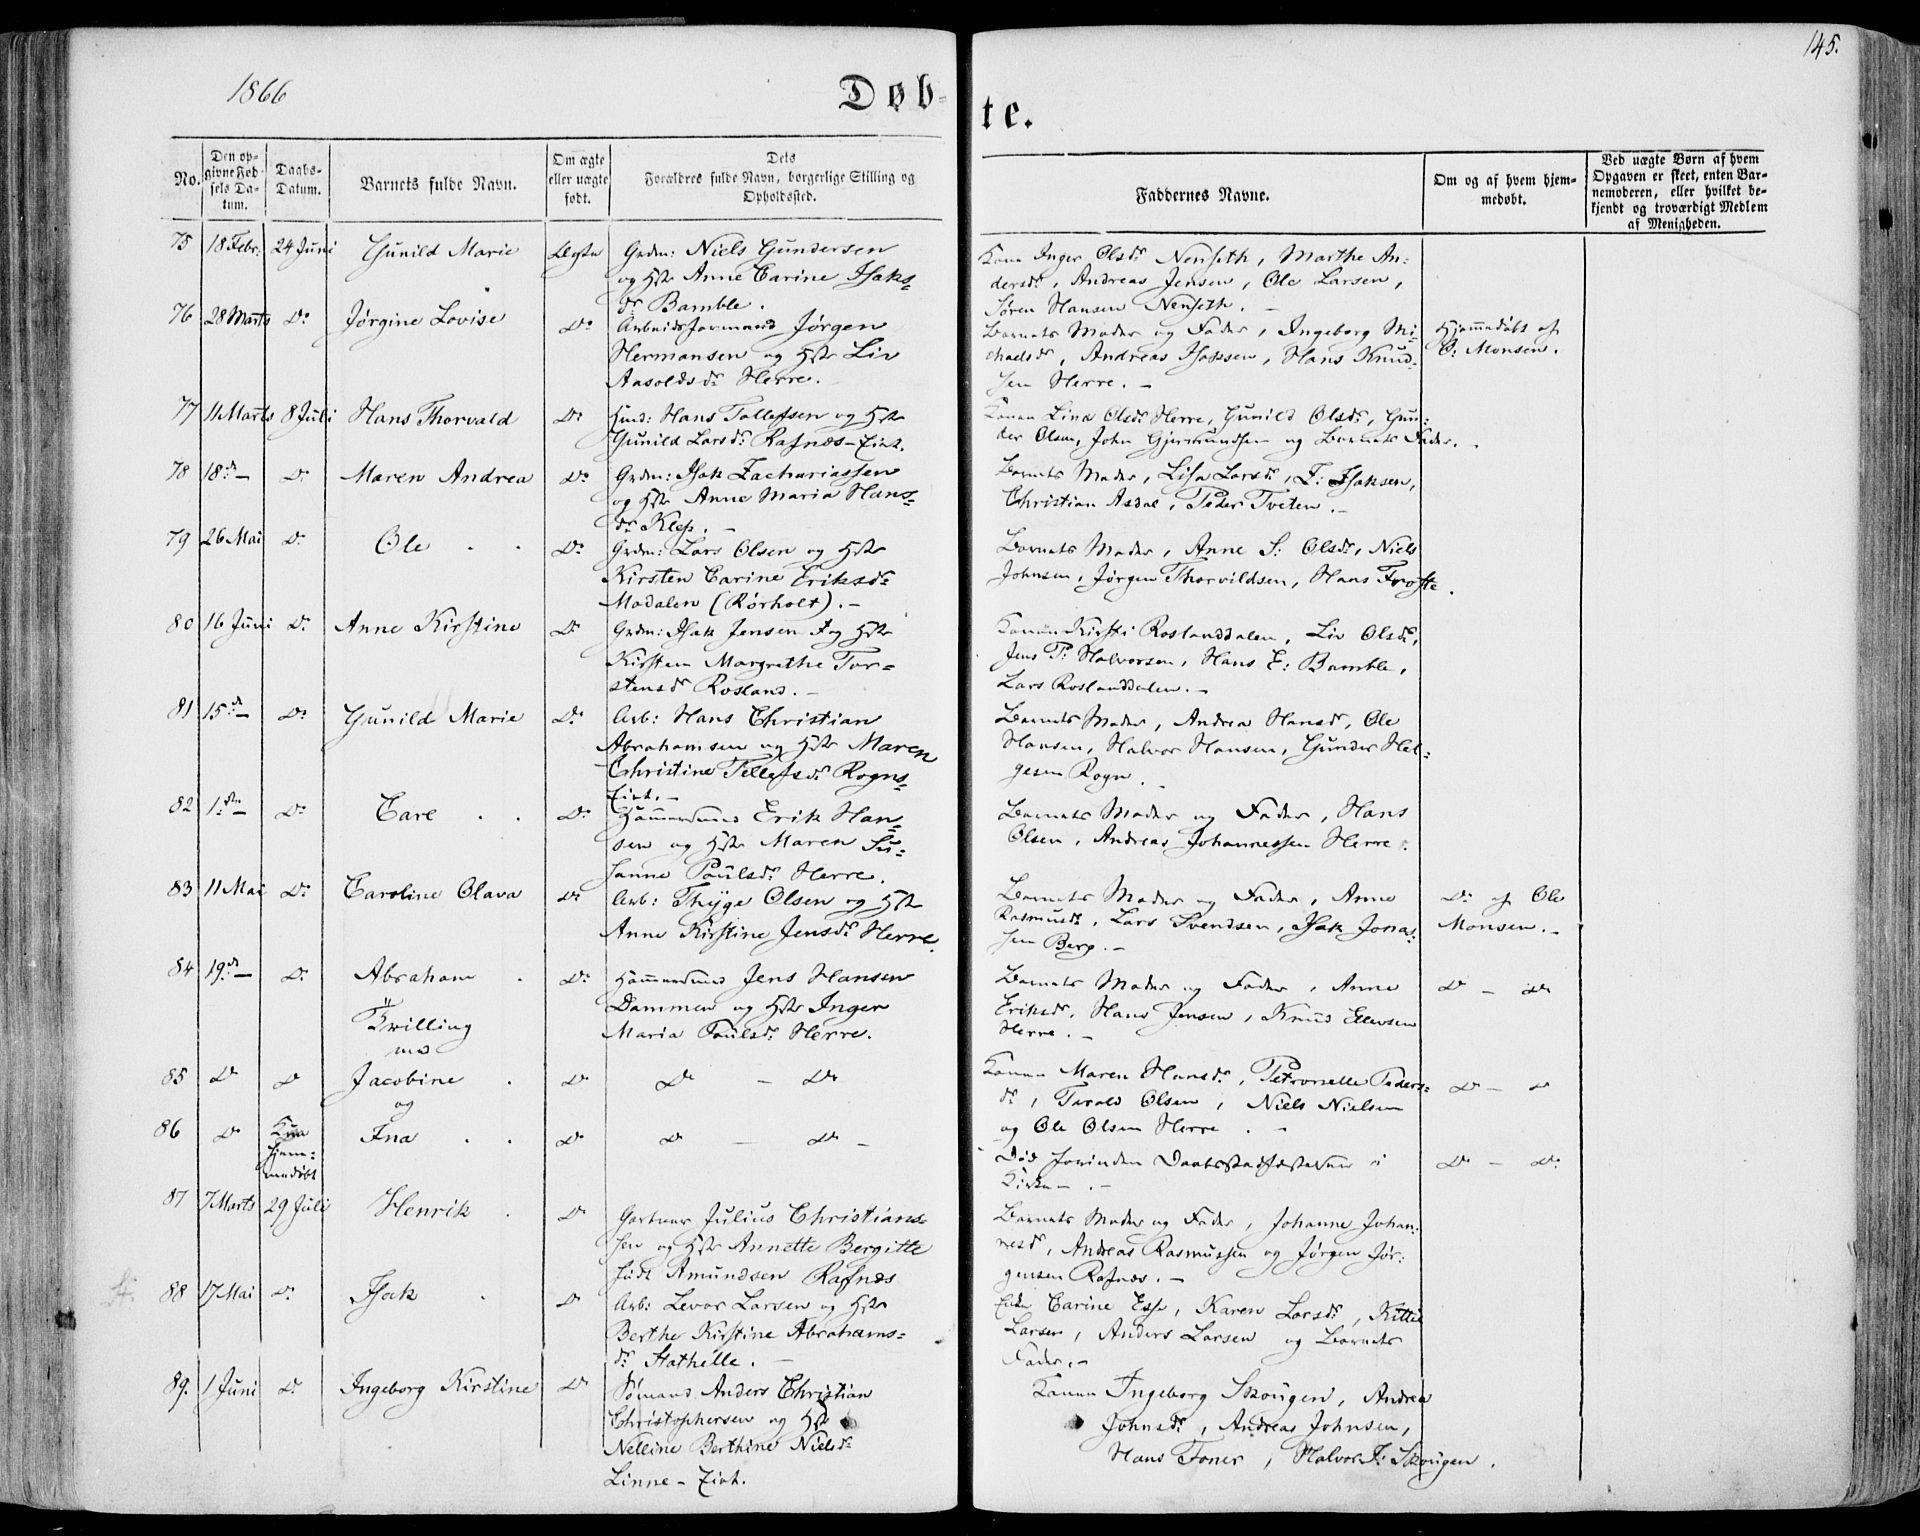 1866
Døb-
te.
145.
No.
Den op-
givne Fød-
sels Da-
tum.
Daabs-
Datum.
Barnets fulde Navn.
Om ægte
eller uægte
født.
Dets
Forældres fulde Navn, borgerlige Stilling og
Opholdssted.
Faddernes Navne.
Om og af hvem hjem-
medøbt.
Ved uægte Børn af hvem
Opgaven er skeet, enten Bar-
nemoderen, eller hvilket be-
kjendt og troværdigt Medlem
af Menigheden.
75 18 Febr: 24 Juni Gunild Marie Ægte Grdm: Niels Gundersen
og Hstr Anne Carine Isaks-
dr Bamble.
Kone Inger Olsdr Nenseth, Marthe An-
dersdr, Andreas Jensen, Ole Larsen,
Søren Hansen Nenseth.
76 28 Marts Do Jørgine Lovise Do Arbeidsformand Jørgen
Hermansen og Hstr Liv
Aasoldsdr Herre.
Barnets Moder og Fader, Ingeborg Mi-
chaelsdr, Andreas Isaksen, Hans Knud-
sen Herre. -
Hjemmedøbt af
O: Monsen.
77 11 Marts 8 Juli Hans Thorvald Do Husmd: Hans Tollefsen og Hstr
Gunild Larsdr Rafnæs-Eiet.
Konen Lina Olsdr Herre, Gunild Olsdr, Gun-
der Olsen, John Gjermundsen og Barnets Fader.
78 18 d - Do Maren Andrea Do Grdm: Isak Zachariassen
og Hstr Anne Maria Hans-
dr Klep. -
Barnets Moder, Lisa Larsdr, F: Isaksen,
Christian Asdal, Peder Tveten. -
79 26 Mai Do Ole Do Grdm: Lars Olsen og Hstr
Kirsten Carine Eriksdr
Madalen (Rørholt). -
Barnets Moder, Anne S: Olsdr, Niels
Johnsen, Jørgen Thorvildsen, Hans Frøste.
80 16 Juni Do Anne Kirstine Do Grdm: Isak Jensen og Hstr
Kirsten Margrethe Tor-
stensdr Rosland. -
Konen Kirsti Roslanddalen, Liv Olsdr,
Jens P: Halvorsen, Hans E: Bamble,
Lars Roslanddalen. -
81 15 d - Do Gunild Marie Do Arb: Hans Christian
Abrahamsen og Hstr Maren
Christine Tellefsdr Rogns-
Eiet. -
Barnets Moder, Andrea Hansdr, Ole
Hansen, Halvor Hansen, Gunder Hel-
gesen Rogn.
82 1. - Do Care Do Hammersmed Erik Han-
sen og Hstr Maren Su-
sanne Poulsdr Herre.
Barnets Moder og Fader, Hans
Olsen, Andreas Johannessen Herre.
83 11 Mai Do Caroline Olava Do Arb: Thyge Olsen og Hstr
Anne Kirstine Jensdr Herre.
Barnets Moder og Fader, Anne
Rasmusdr, Lars Svendsen, Isak Jona-
sen Berg. -
Do af Ole
Monsen. -
84 19 d - Do Abraham Do Hammersmed Jens Hansen
Tvilling
med
Dammen og Hstr Inger
Maria Poulsdr Herre.
Barnets Moder og Fader, Anne
Eriksdr, Hans Jensen, Knud Ellevsen
Herre. -
Do - do
85 Do Do Jacobine Do Do - Do
og
Konen Maren Hansdr, Petronelle Peders-
dr, Tarald Olsen, Niels Nielsen
og Ole Olsen Herre. -
Do - Do
86 Do Kun
hjem-
medøbt
Ina Do Do - Do -
Død forinden Daabsstadfæstelsen i
Kirken -. -
Do - Do
87 7 Marts 29 Juli Henrik Do Gartner Julius Christian-
sen og Hstr Annette Bergitte
født Amundsen Rafnæs
Barnets Moder og Fader, Johanne Johan-
nesdr, Andreas Rasmussen og Jørgen Jør-
gensen Rafnæs. -
88 17 Mai Do Isak Do Arb: Levor Larsen og Hstr
Berthe Kirstine Abrahams-
dr Stathelle. -
Enke Carine Esp, Karen Larsdr, Kittil
Larsen, Anders Larsen og Barnets
Fader. -
89. 1 Juni Do Ingeborg Kirstine Do Sømand Anders Christian
Christophersen og Hstr
Nelline Berthine Nielsdr
Linne-Eiet.
Konen Ingeborg Skougen, Andrea
Johnsdr, Andreas Johnsen,
Hans Toner, Halvor J: Skougen.